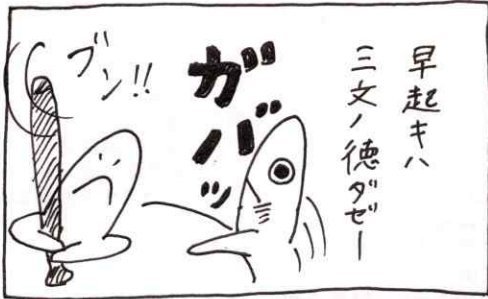 早起キハ
三文ノ徳ダゼー
ガバッ
ブン!!